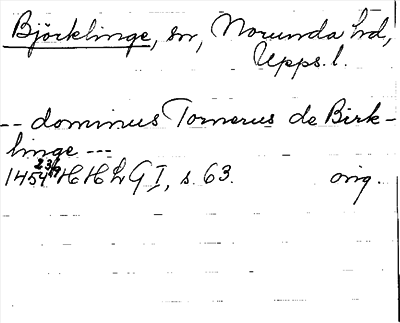 Björklinge, sn, Norunda hd,
Upps. l.
-- dominus Tomerus de Birk-
linge ---
1454 23/9 HHLG I, s. 63. orig.